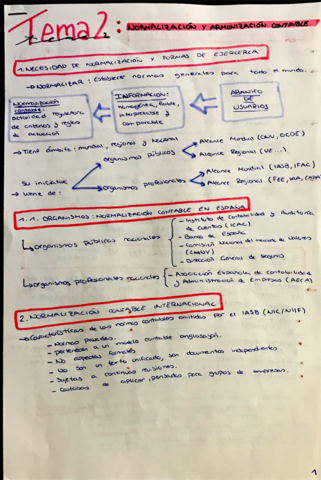 Tema 2: NORMALIZACIÓN Y ARMONIZACIÓN CONTABLE
1. NECESIDAD DE NORMALIZACIÓN Y FORMAS DE EJERCERLA
→ NORMALIZAR: Establece normas generales para todo el mundo.
Normalización contable actividad reguladora de criterios y reglas de actuación
INFORMACIÓN: homogénea, fiable, interpretable y comparable
ABANICO DE USUARIOS
→ Tiene ámbito: mundial, regional y nacional
→ Su iniciativa viene de:
organismos públicos
Alcance Mundial (ONU, OCDE)
Alcance Regional (UE...)
organismos profesionales
Alcance Mundial (IASB, IFAC)
Alcance Regional (FEE,
1.1. ORGANISMOS: NORMALIZACIÓN CONTABLE EN ESPAÑA
organismos públicos nacionales
- Instituto de Contabilidad y Auditoría de Cuentas (ICAC)
- Banco de España
- Comisión Nacional del mercado de Valores (CNMV)
- Dirección General de seguros
organismos profesionales nacionales
- Asociación Española de Contabilidad y Administración de Empresas (AECA)
2. NORMALIZACIÓN CONTABLE INTERNACIONAL
→ Características de las normas contables emitidas por el IASB (NIC/NIIF)
- Normas privadas.
- pertenecen a un modelo contable anglosajón.
- No aspectos formales
- No son un texto unificado, son documentos independientes.
- Sujetas a continuas revisiones.
- Costosas de aplicar, pensadas para grupos de empresas.
1